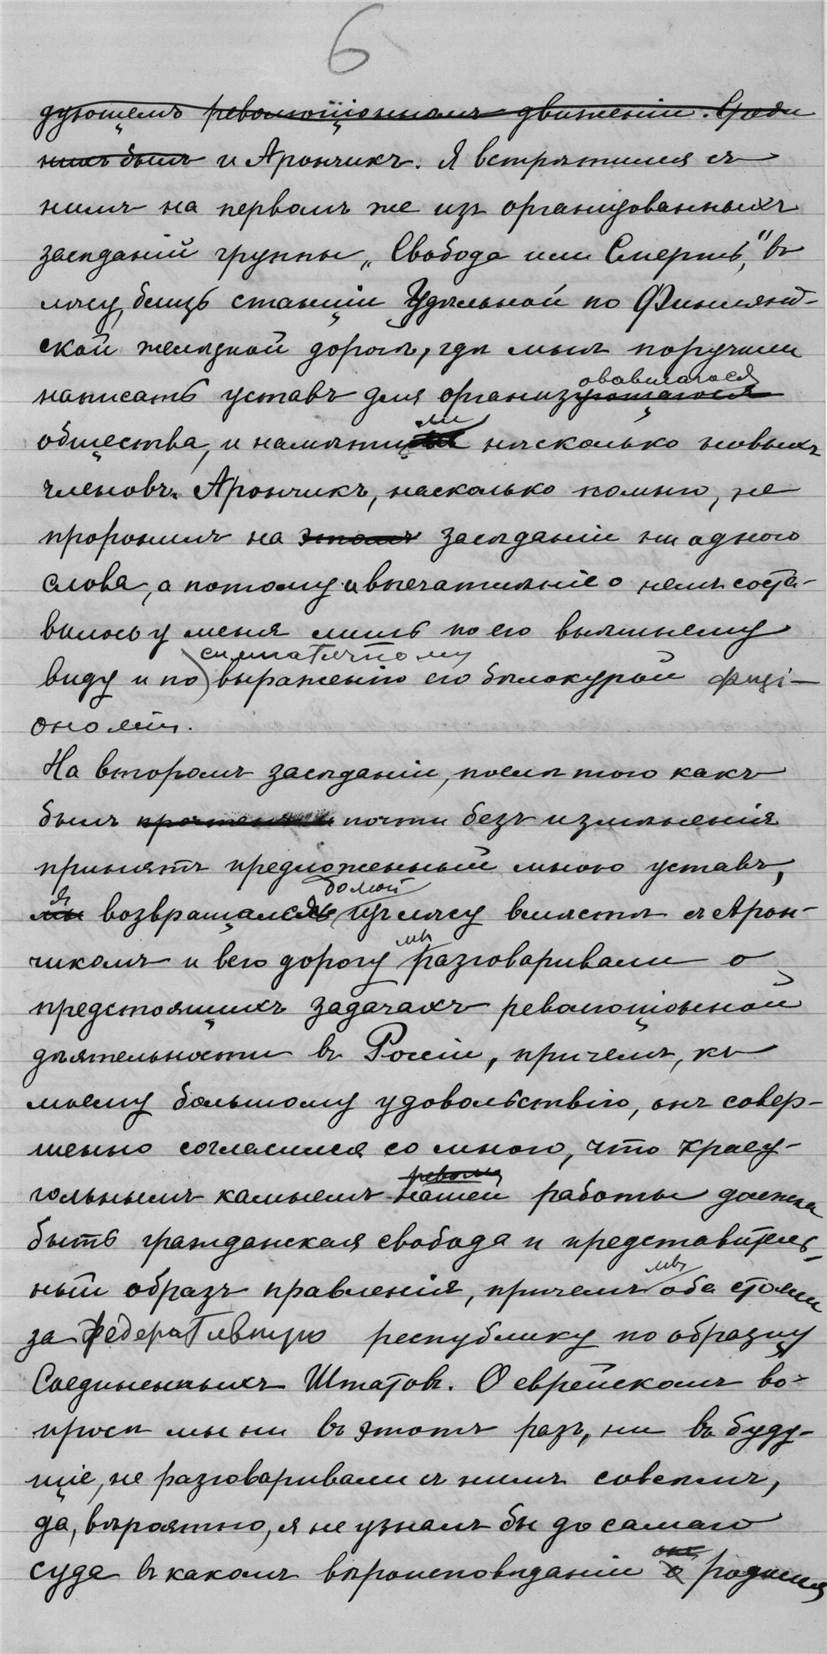 6
дующемъ революціонномъ движеніи. Среди
нихъ былъ и Арончикъ. Я встрѣтился съ
нимъ на первомъ же изъ организованныхъ
засѣданій группы „Свобода или Смерть," въ
лѣсу, близь станціи Удѣльной по Финлянд-
ской желѣзной дорогѣ, гдѣ мнѣ поручили
овавшагося
написать уставъ для организующагося
ли
общества, и намѣтили нѣсколько новыхъ
членовъ. Арончикъ, насколько помню, не
проронилъ на этомъ засѣданіи ни одного
слова, а потому и впечатлѣніе о немъ соста-
вилось у меня лишь по его внѣшнему
симпатичному
виду и по выраженію его бѣлокурой физі-
ономіи.
На второмъ засѣданіи, послѣ того какъ
былъ почти безъ измѣненія
принятъ предложенный мною уставъ,
я домой
мы возвращался изъ лѣсу вмѣстѣ съ Арон-
мы
чикомъ и всю дорогу разговаривали о
предстоящихъ задачахъ революціонной
дѣятельности въ Россіи, причемъ, къ
моему большому удовольствію, онъ совер-
шенно согласился со мною, что краеу-
революц
гольнымъ камнемъ нашей работы должна
быть гражданская свобода и представитель-
мы
ный образъ правленія, причемъ оба стояли
за федеративную республику по образцу
Соединенныхъ Штатовъ. О еврейскомъ во-
просѣ мы ни въ этотъ разъ, ни въ буду-
щіе, не разговаривали съ нимъ совсѣмъ,
да, вѣроятно, я не узналъ бы до самаго
онъ
суда въ какомъ вѣроисповѣданіи родился